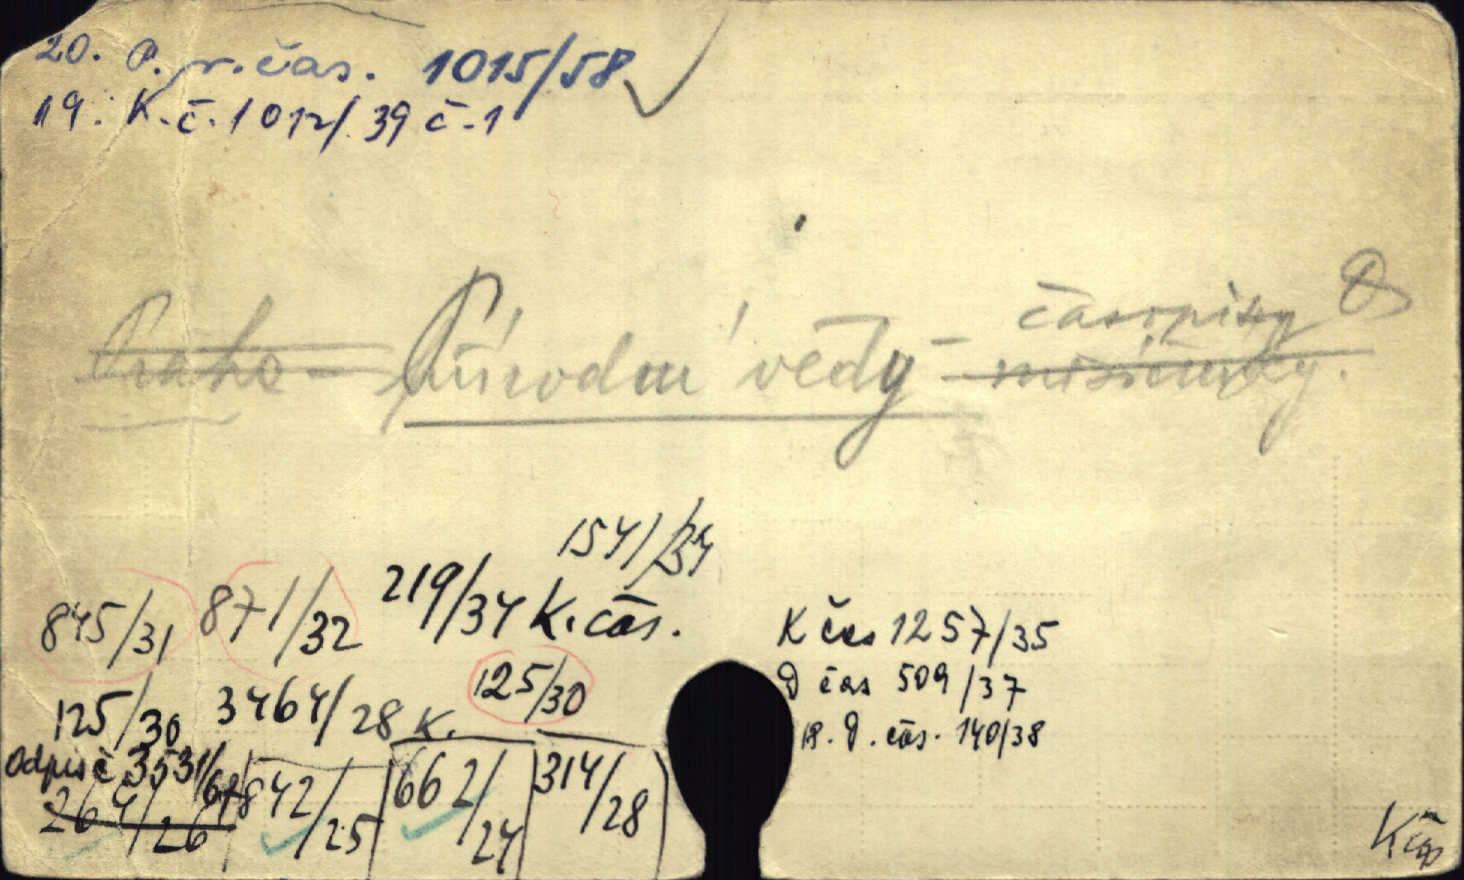 20. P. r. čas. 1015/58
19. K. č. 1012/39 č. 1
Praha - Přírodní vědy - časopisy D
měsíčníky.
154/34
845/31 871/32 219/34 K. čas.
K čas 1257/35
125/30 3464/28 K. 125/30
D čas 509/37
19. D. čas. 140/38
Odpis č 3531/
264/26 842/25 662/24 314/28